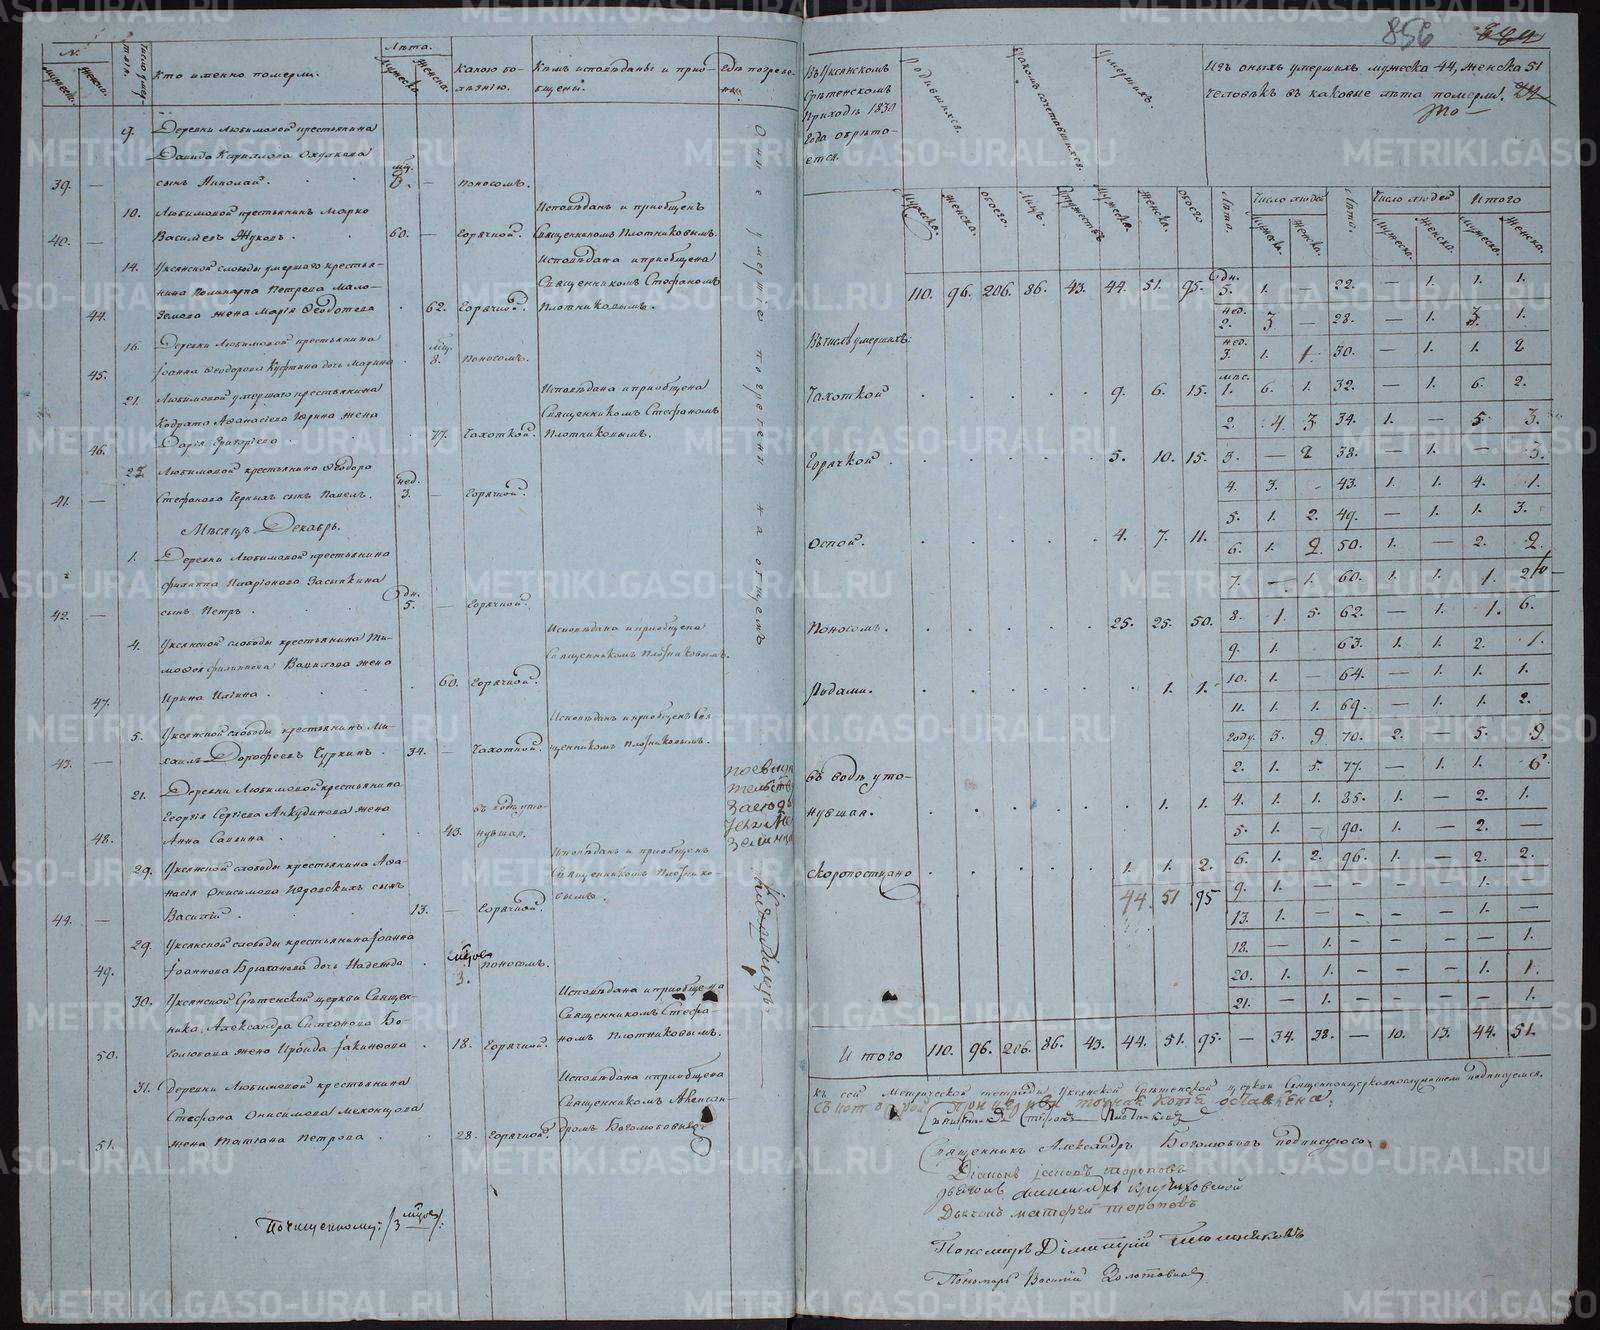 856
№
мужеска.
женска.
Число умер-
шихъ.
Кто именно померли.
Лѣта.
Мужеска.
Женска.
Какою бо-
лѣзнію.
Кѣмъ исповѣданы и прiоб-
щены.
Гдѣ погребе-
ны.
9. Деревни Любимовой крестьянина
Давида Кирилова
39. — сынъ Николай. 8. — поносомъ.
10. Любимовой крестьянинъ Марко
40. — Васильевъ Жуковъ. 60. — Горячкой.
Исповѣданъ и прiобщенъ
Священникомъ Плотниковымъ.
14. Уксянской слободы умершаго крестья-
нина Поликарпа Петрова Мало-
44. Земова жена Марiя Ѳедотова 62. Горячкой.
Исповѣдана и прiобщена
Священникомъ Стефаномъ
Плотниковымъ.
16. Деревни Любимовой крестьянина
45. Iоанна Ѳеодорова дочь Марина 8. поносомъ.
21. Любимовой умершаго крестьянина
Кодрата Аѳанасiева Юрина жена
46. Дарiя Григорiева 77. Чахоткой.
Исповѣдана и прiобщена
Священникомъ Стефаномъ
Плотниковымъ.
23 Любимовой крестьянина Ѳеодора
41. — Стефанова Черныхъ сынъ Павелъ. нед. 3. — Горячкой.
Мѣсяцъ Декабрь.
1. Деревни Любимовой крестьянина
Филиппа Иларiонова Засыпкина
42. — сынъ Петръ. дн. 5. — Горячкой.
4. Уксянской слободы крестьянина Ти-
мофея Филиппова Вавилова жена
47. Ирина Ильина. 60. Горячкой.
Исповѣдана и прiобщена
Священникомъ Плотниковымъ.
5. Уксянской слободы крестьянинъ Ми-
43. — хаилъ Дорофеевъ Суркинъ. 34. — Чахоткой.
Исповѣданъ и прiобщенъ Свя-
щенникомъ Плотниковымъ.
21. Деревни Любимовой крестьянина
Георгiя Сергiева Анкудинова жена
48. Анна Саввина 43. въ водѣ уто-
нувшая.
29. Уксянской слободы крестьянина Аѳа-
насiя Онисимова Юровскихъ сынъ
44. — Василiй. 13. — Горячкой.
Исповѣданъ и прiобщенъ
Священникомъ Плотнико-
вымъ.
29. Уксянской слободы крестьянина Iоанна
49. Iоаннова Брюханова дочь Надежда 3. поносомъ.
30. Уксянской Срѣтенской церкви Священ-
ника Александра Симеонова Бо-
50. голюбова жена Ироида Iакинѳова 18. Горячкой.
Исповѣдана и прiобщена
Священникомъ Стефа-
номъ Плотниковымъ.
31. Деревни Любимовой крестьянина
Стефана Онисимова Мехонцова
51. жена Татiана Петрова 28. Горячкой.
Исповѣдана и прiобщена
Священникомъ Алексан-
дромъ Боголюбовымъ
Оные умершiе погребены на общемъ
кладбищѣ
Въ Уксянскомъ
Срѣтенскомъ
Приходѣ 1830
года обрѣта-
ется.
Родившихся.
Бракомъ сочетавшихся.
Умершихъ.
Изъ оныхъ умершихъ мужеска 44, женска 51
человѣкъ въ каковые лѣта померли.
Мужеска. Женска. Обоего. Лицъ. Супружествъ Мужеска. Женска. Обоего
Лѣта. Число людей Лѣта. Число людей Итого
Мужеска. Женска. Мужеска. Женска. Мужеска. Женска.
110. 96. 206. 86. 43. 44. 51. 95.
Въ числѣ умершихъ:
Чахоткой 9. 6. 15.
Горячкой 5. 10. 15.
Оспой. 4. 7. 11.
Поносомъ. 25. 25. 50.
Родами. 1. 1.
въ водѣ уто-
нувшая. 1. 1.
Скоропостижно 1. 1. 2.
44. 51 95
дн. 5. 1. — 22. — 1. 1. 1.
нед. 2. 3 — 28. — 1. 3. 1.
нед. 3. 1. 1 30. — 1. 1. 2
мѣс. 1. 6. 1. 32. — 1. 6. 2.
2. 4 3 34. 1. — 5. 3.
3. — 2 38. — 1. — 3.
4. 3. 43. 1. 1. 4. 1.
5. 1. 2. 49. — 1. 1. 3.
6. 1. 2. 50. 1. — 2. 2.
7. — 1. 60. 1. 1. 1. 2
8. 1 5. 62. — 1. 1. 6.
9. 1. 63. 1. 1. 2. 1.
10. 1. — 64. — 1. 1. 1.
11. 1. 1. 69. — 1. 1. 2.
Году. 3. 9 70. 2. — 5. 9.
2. 1. 5. 77. — 1. 1. 6
4. 1. 1. 85. 1. — 2. 1.
5. 1. — 90. 1. — 2. —
6. 1. 2. 96. 1. — 2. 2.
9. 1. — — — — 1. —
13. 1. — — — — 1. —
18. — 1. — — — — 1.
20. 1. 1. — — — 1. 1.
21. — 1. — — — — 1.
Итого 110. 96. 206. 86. 43. 44. 51. 95. — 34. 38. — 10. 13. 44. 51.
Къ сей Метрической тетради Уксянской Срѣтенской церкви Священноцерковнослужители подписуемся.
съ которой при церкви точная копiя оставлена.
Священникъ Стефанъ Плотниковъ
Священникъ Александръ Боголюбовъ подписуюсь
Дiаконъ Iаковъ Тороповъ
Дьячокъ Матфей Тороповъ
Пономарь Димитрiй
Пономарь Василiй
METRIKI.GASO-URAL.RU